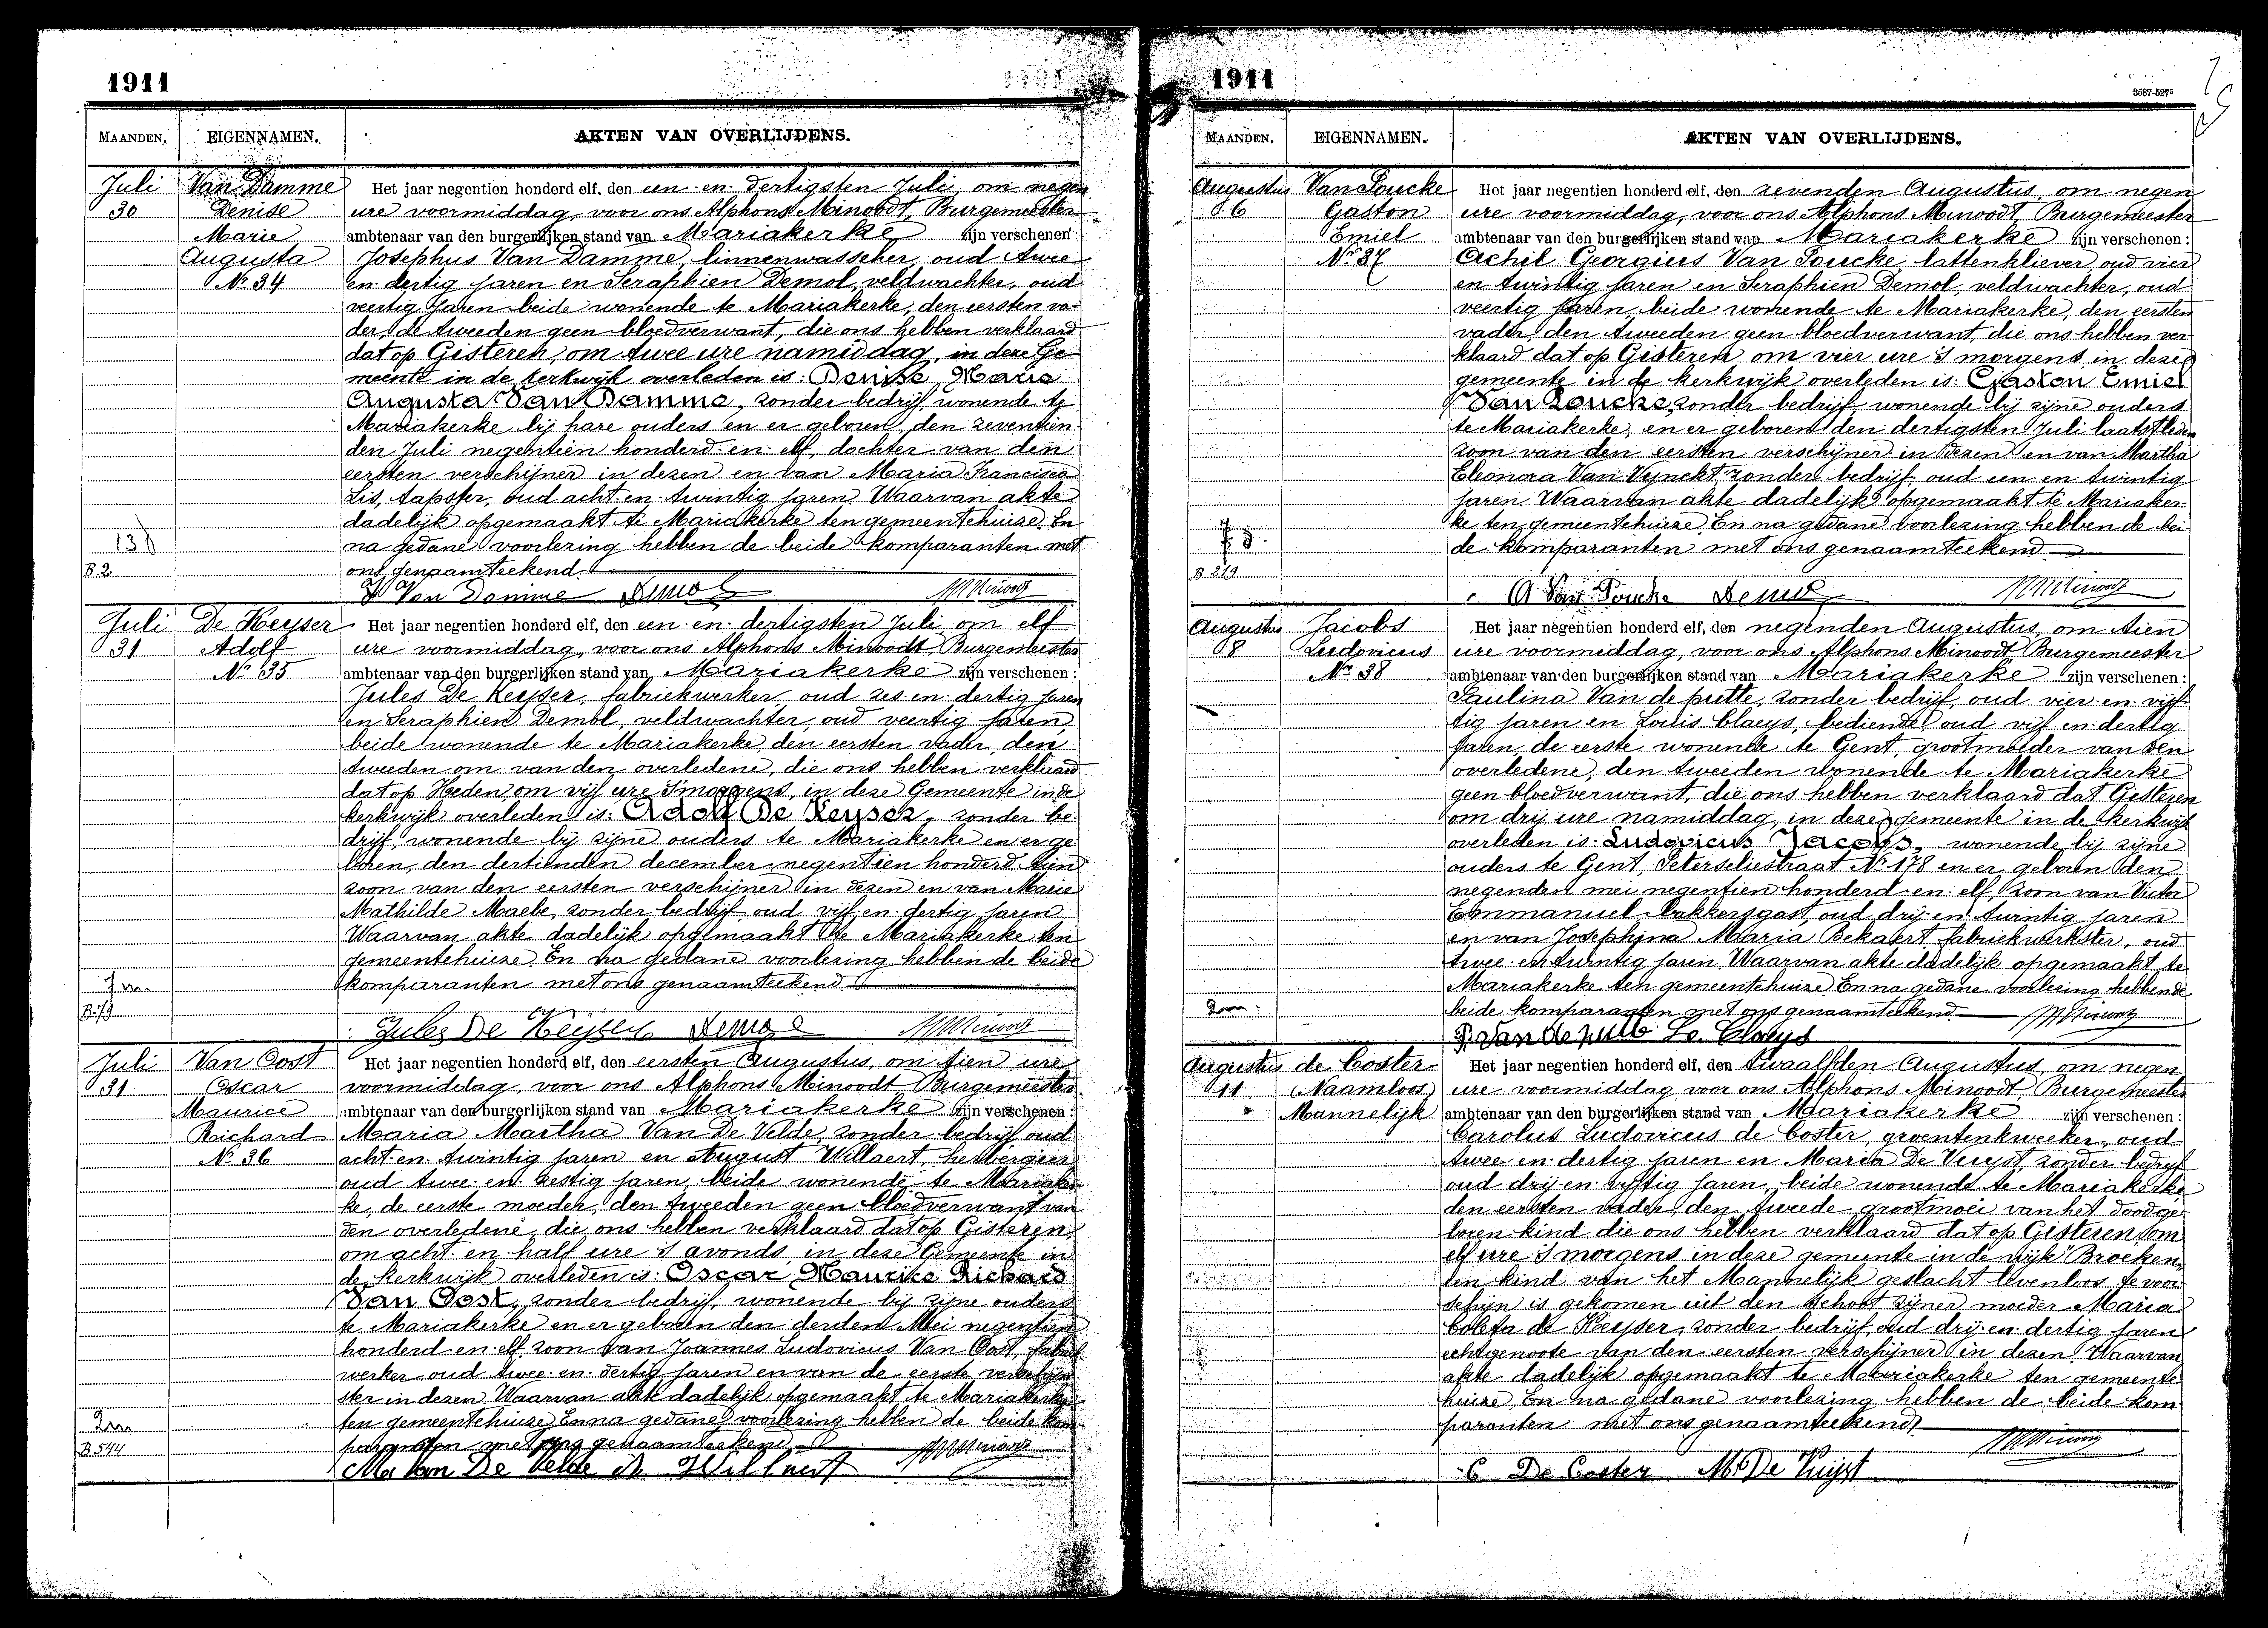 1911
MAANDEN. EIGENNAMEN. AKTEN VAN OVERLIJDENS.
Juli Van Damme Het jaar negentien honderd elf, den een en dertigsten Juli, om negen
30 Denise ure voormiddag, voor ons Alphons Minoodt, Burgemeester
Marie ambtenaar van den burgerlijken stand van Mariakerke zijn verschenen:
Augusta Josephus Van Damme, linnenwasscher, oud twee
Nr 34 en dertig jaren en Seraphien Demol, veldwachter, oud
veertig jaren beide wonende te Mariakerke, den eersten va-
der, de tweeden geen bloedverwant, die ons hebben verklaard
dat op Gisteren, om twee ure namiddag, in deze Ge-
meente in de kerkwijk overleden is: Denise Marie
Augusta Van Damme, zonder bedrijf, wonende te
Mariakerke bij hare ouders en er geboren, den zeventien-
den Juli negentien honderd en elf, dochter van den
eersten verschijner in dezen en van Maria Francisca
Lis, tapster, oud acht en twintig jaren. Waarvan akte
dadelijk opgemaakt te Mariakerke ten gemeentehuize. En
13 d na gedane voorlezing hebben de beide komparanten met
B.2 ons genaamteekend.
J Van Damme Demol AMinoodt
Juli De Keyser Het jaar negentien honderd elf, den een en dertigsten Juli om elf
31 Adolf ure voormiddag, voor ons Alphons Minoodt Burgemeester
Nr 35 ambtenaar van den burgerlijken stand van Mariakerke zijn verschenen:
Jules De Keyser, fabriekwerker, oud zes en dertig jaren
en Seraphien Demol, veldwachter, oud veertig jaren,
beide wonende te Mariakerke, den eersten vader, den
tweeden om van den overledene, die ons hebben verklaard
dat op Heden, om vijf ure 's morgens, in deze Gemeente in de
kerkwijk overleden is: Adolf De Keyser, zonder be-
drijf, wonende bij zijne ouders te Mariakerke en er ge-
boren, den dertienden december negentien honderd tien
zoon van den eersten verschijner in dezen en van Marie
Mathilde Maebe, zonder bedrijf oud vijf en dertig jaren
Waarvan akte dadelijk opgemaakt te Mariakerke ten
gemeentehuize. En na gedane voorlezing hebben de beide
7 m. komparanten met ons genaamteekend.
B.79
Jules De Keyser Demol AMinoodt
Juli Van Oost Het jaar negentien honderd elf, den eersten Augustus, om tien ure
31 Oscar voormiddag, voor ons Alphons Minoodt Burgemeester
Maurice ambtenaar van den burgerlijken stand van Mariakerke zijn verschenen:
Richard Maria Martha Van De Velde, zonder bedrijf, oud
Nr 36 acht en twintig jaren en August Willaert, herbergier
oud twee en zestig jaren, beide wonende te Mariaker-
ke, de eerste moeder, den tweeden geen bloedverwant van
den overledene, die ons hebben verklaard dat op Gisteren,
om acht en half ure 's avonds, in deze Gemeente in
de kerkwijk overleden is: Oscar Maurice Richard
Van Oost, zonder bedrijf, wonende bij zijne ouders
te Mariakerke en er geboren den derden Mei negentien
honderd en elf, zoon van Joannes Ludovicus Van Oost, fabriek-
werker oud twee en dertig jaren en van de eerste verschijn-
ster in dezen. Waarvan akte dadelijk opgemaakt te Mariakerke
ten gemeentehuize. En na gedane voorlezing hebben de beide kom-
2m
B.544 paranten met ons genaamteekend. AMinoodt
Ma Van De Velde A Willaert
1911
8587-5275
MAANDEN. EIGENNAMEN. AKTEN VAN OVERLIJDENS.
Augustus Van Poucke Het jaar negentien honderd elf, den zevenden Augustus, om negen
6 Gaston ure voormiddag, voor ons Alphons Minoodt, Burgemeester
Emiel ambtenaar van den burgerlijken stand van Mariakerke zijn verschenen:
Nr 37 Achil Georgius Van Poucke, lattenkliever, oud vier
en twintig jaren en Seraphien Demol, veldwachter, oud
veertig jaren, beide wonende te Mariakerke, den eersten
vader, den tweeden geen bloedverwant, die ons hebben ver-
klaard dat op Gisteren, om vier ure 's morgens, in deze
gemeente in de kerkwijk overleden is: Gaston Emiel
Van Poucke, zonder bedrijf wonende bij zijne ouders
te Mariakerke, en er geboren den dertigsten Juli laatstleden
zoon van den eersten verschijner in dezen en van Martha
Eleonora Van Vynckt, zonder bedrijf oud een en twintig
jaren. Waarvan akte dadelijk opgemaakt te Mariaker-
ke ten gemeentehuize. En na gedane voorlezing hebben de bei-
7 d. de komparanten met ons genaamteekend
B 219
A Van Poucke Demol AMinoodt
Augustus Jacobs Het jaar negentien honderd elf, den negenden Augustus, om tien
8 Ludovicus ure voormiddag, voor ons Alphons Minoodt, Burgemeester
Nr 38 ambtenaar van den burgerlijken stand van Mariakerke zijn verschenen:
Paulina Van de putte, zonder bedrijf, oud vier en vijf-
tig jaren en Louis Claeys, bediende, oud vijf en dertig
jaren, de eerste wonende te Gent, grootmoeder van den
overledene, den tweeden wonende te Mariakerke
geen bloedverwant, die ons hebben verklaard dat Gisteren
om drij ure namiddag, in deze gemeente in de kerkwijk
overleden is: Ludovicus Jacobs, wonende bij zijne
ouders te Gent, Peterseliestraat Nr 178 en er geboren den
negenden mei negentien honderd en elf, zoon van Victor
Emmanuel, bakkersgast, oud drij en twintig jaren
en van Josephina Maria Bekaert, fabriekwerkster, oud
twee en twintig jaren. Waarvan akte dadelijk opgemaakt te
Mariakerke ten gemeentehuize. En na gedane voorlezing hebben de
2m. beide komparanten met ons genaamteekend. AMinoodt
P. Van de putte Lo. Claeys
Augustus de Coster Het jaar negentien honderd elf, den twaalfden Augustus, om negen
11 (Naamloos) ure voormiddag voor ons Alphons Minoodt, Burgemeester
Mannelijk ambtenaar van den burgerlijken stand van Mariakerke zijn verschenen:
Carolus Ludovicus de Coster, groentenkweeker, oud
twee en dertig jaren en Maria De Vuyst, zonder bedrijf
oud drij en vijftig jaren, beide wonende te Mariakerke
den eersten vader, den tweede grootmoei van het doodge-
boren kind die ons hebben verklaard dat op Gisteren, om
elf ure 's morgens in deze gemeente in de wijk Broeken,
een kind van het Mannelijk geslacht levenloos te voor-
schijn is gekomen uit den schoot zijner moeder Maria
Coleta de Keyser, zonder bedrijf, oud drij en dertig jaren
echtgenoote van den eersten verschijner in dezen. Waarvan
akte dadelijk opgemaakt te Mariakerke ten gemeente-
huize. En na gedane voorlezing hebben de beide kom-
paranten met ons genaamteekend.
AMinoodt
C De Coster M. De Vuijst